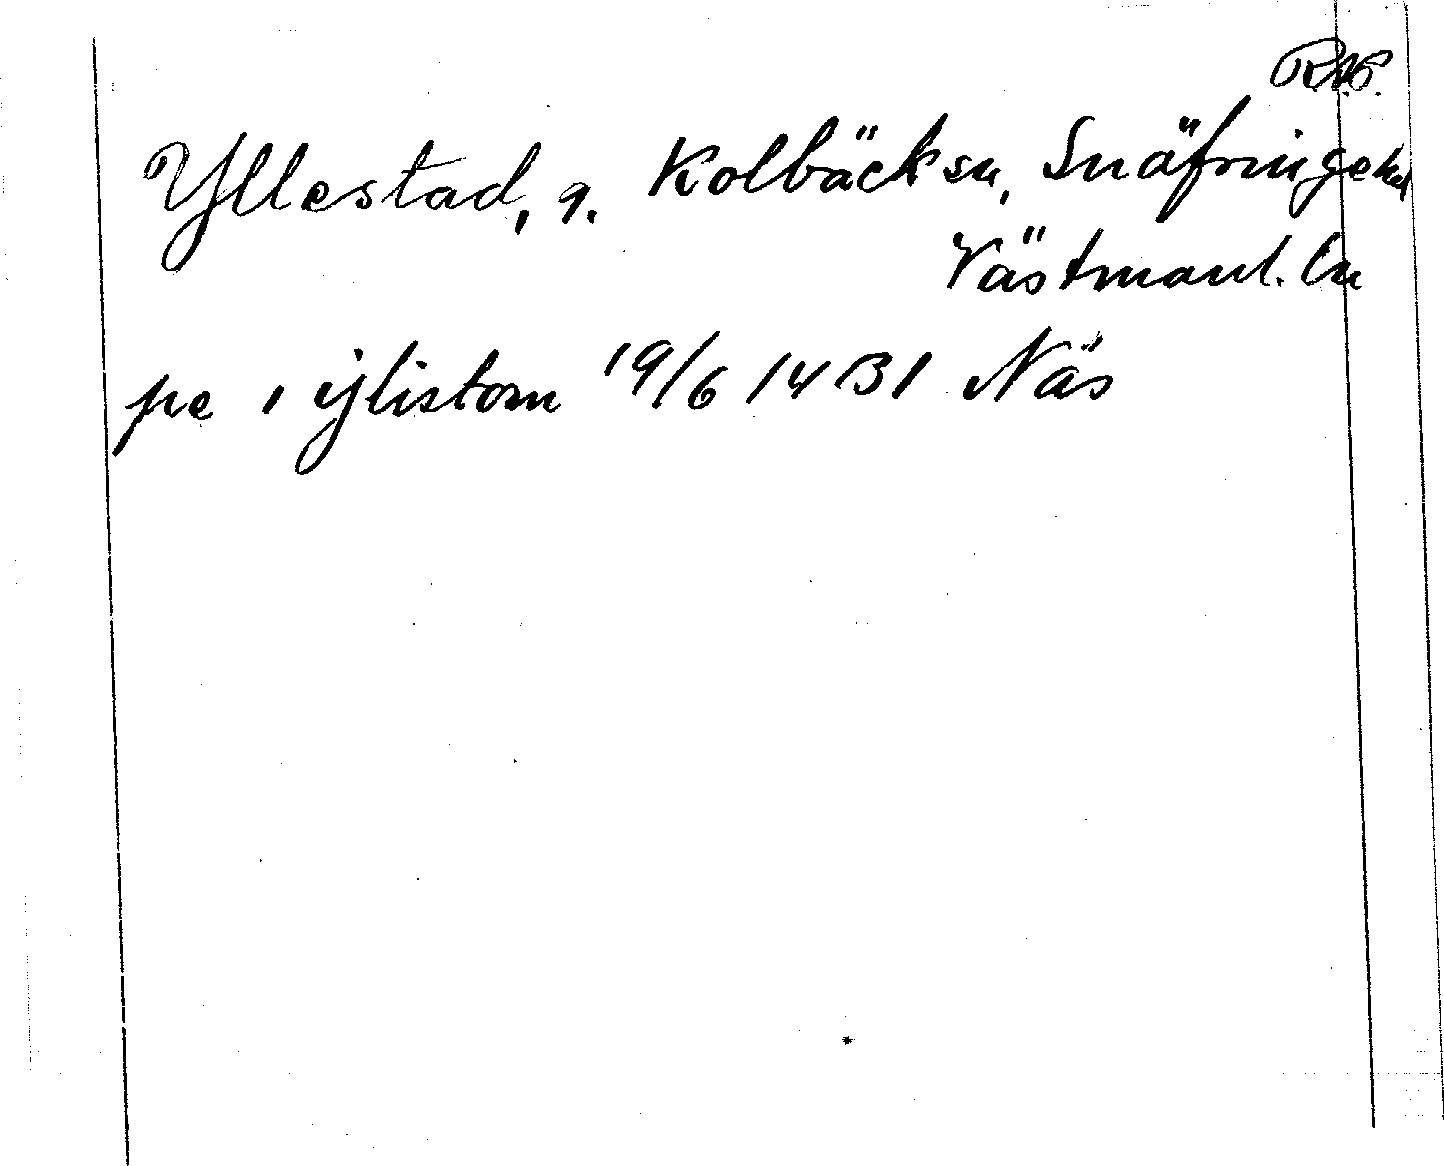 R.N.B.
Yllestad, g. Kolbäck sn, Snäfringe hd
Västmanl. ln
pe i ijlistom 19/6 1431 Näs